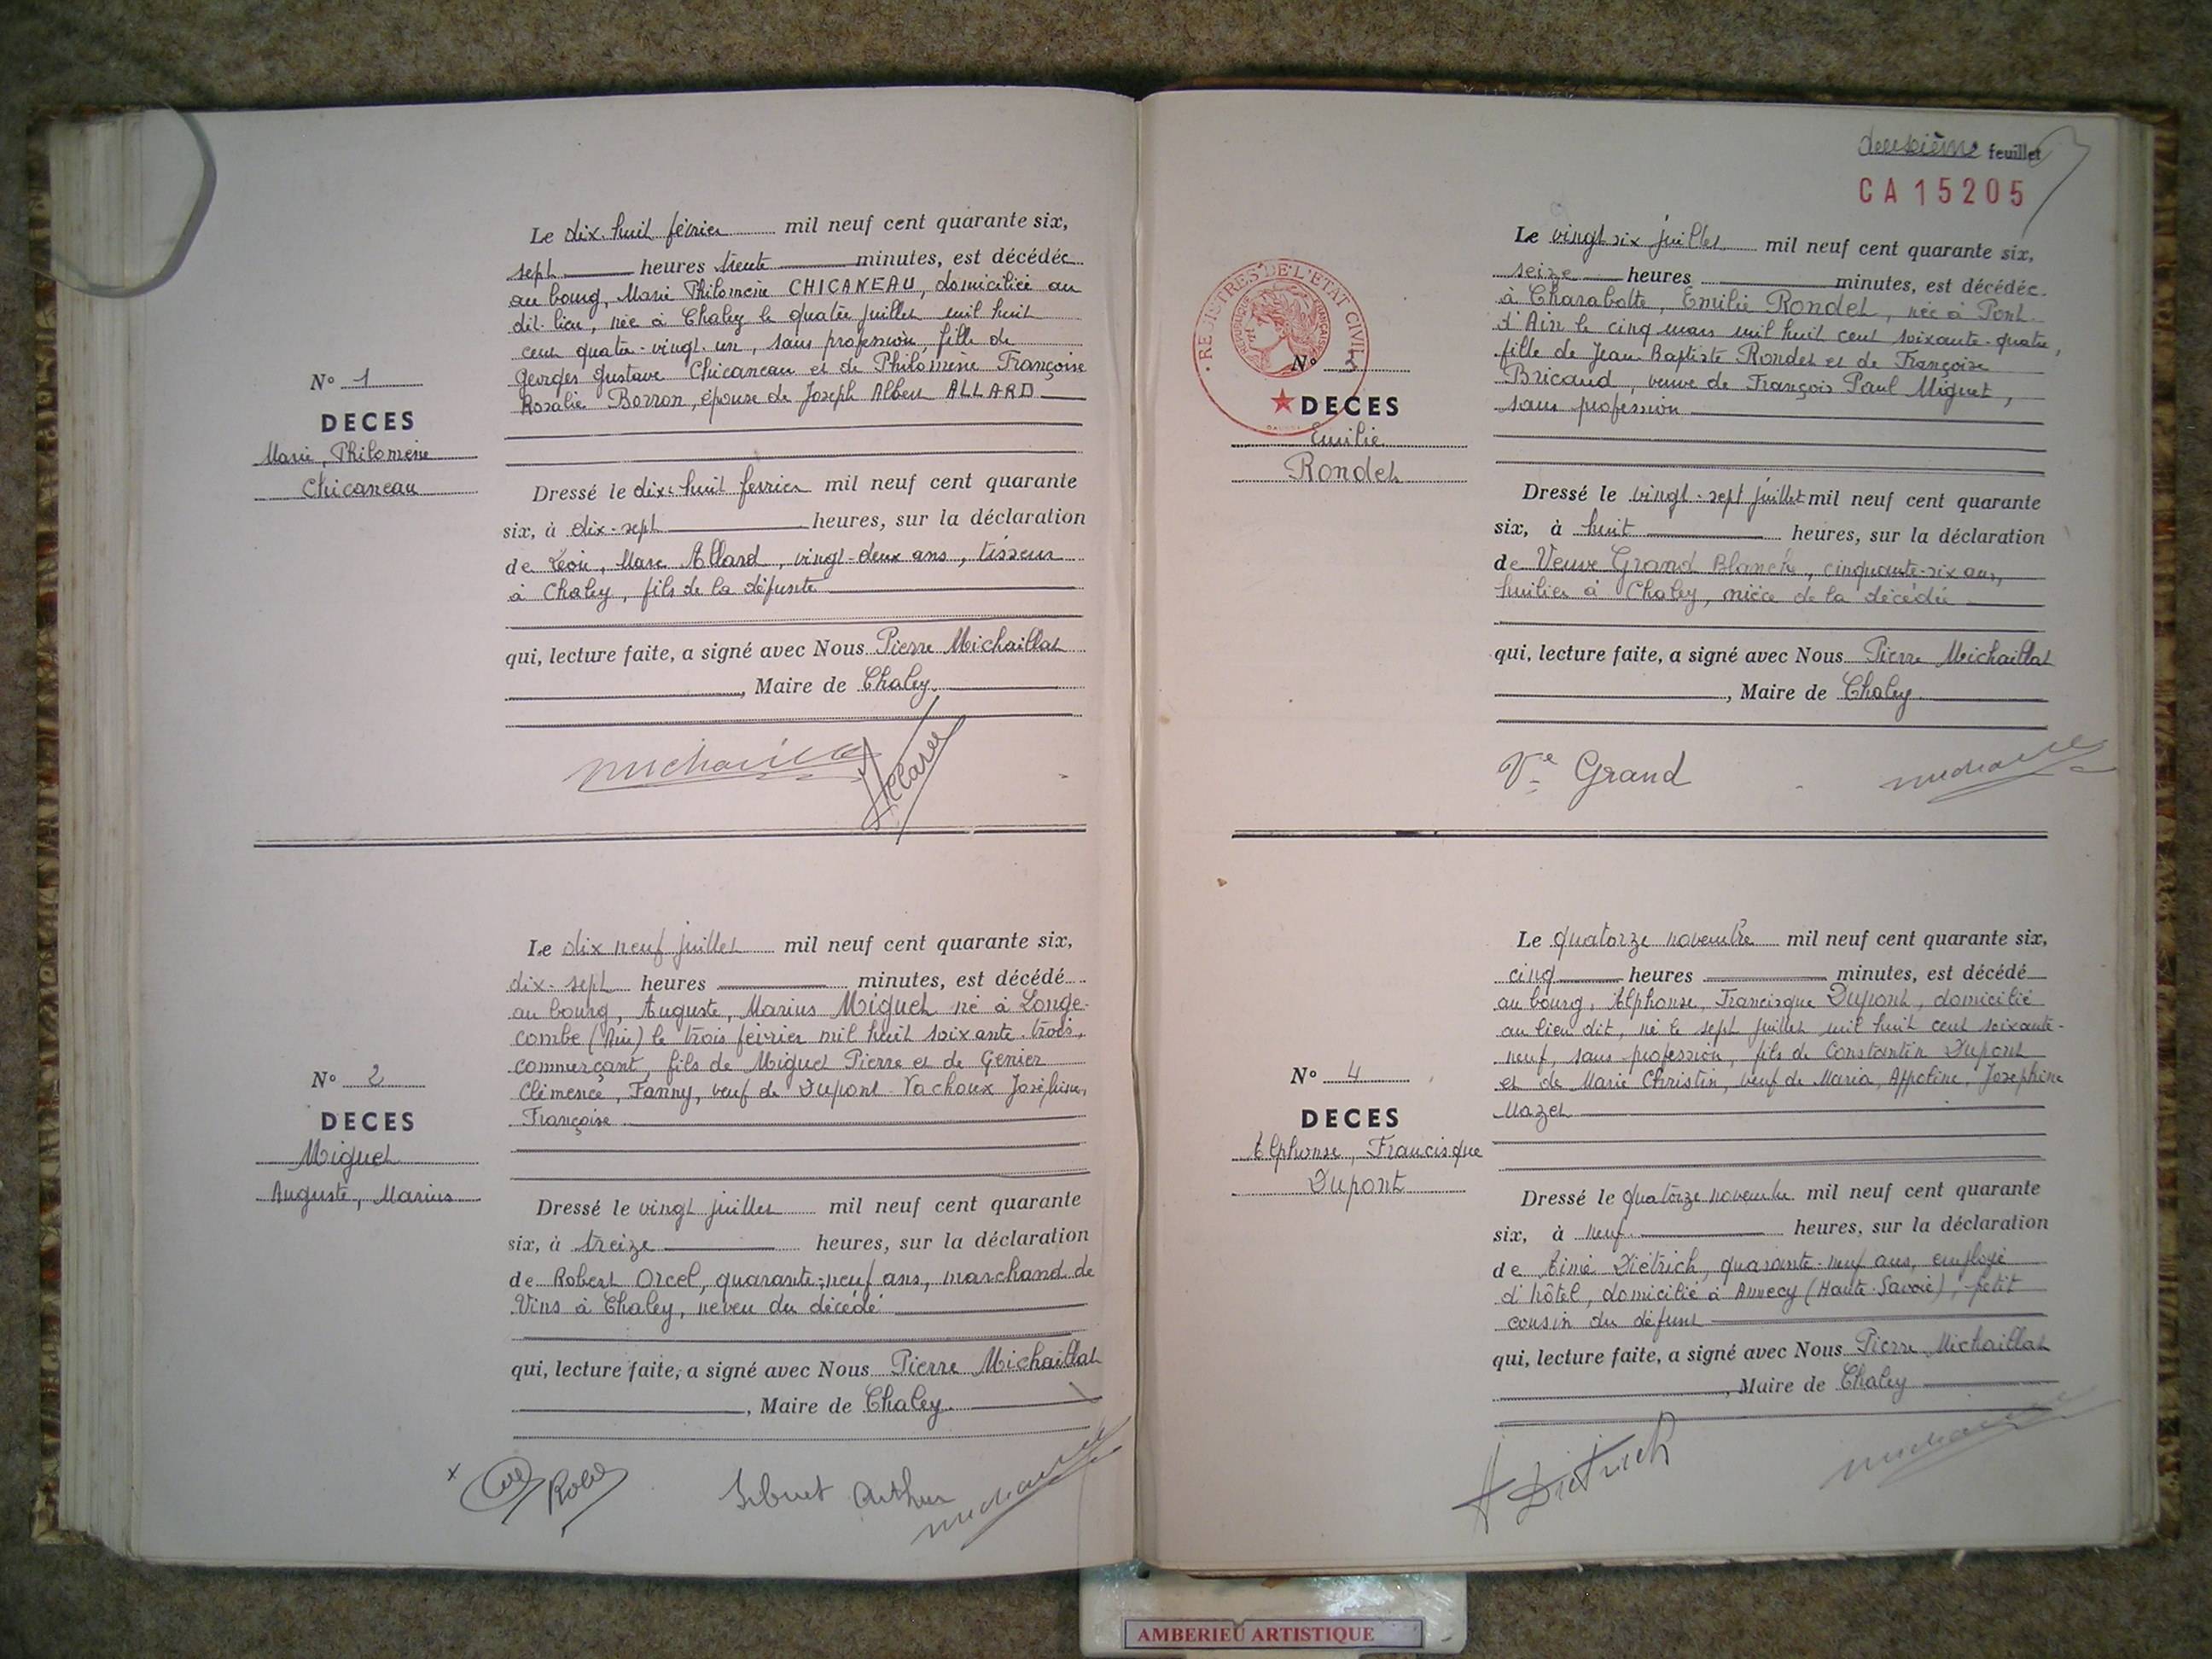 N° 1
DECES
Marie, Philomène
Chicaneau
Le dix-huit février mil neuf cent quarante six,
sept heures trente minutes, est décédée
au bourg, Marie Philomène CHICANEAU, domiciliée au
dit-lieu, née à Chaley le quatre juillet mil huit
cent quatre-vingt-un, sans profession, fille de
Georges Gustave Chicaneau et de Philomène Françoise
Rosalie Borron, épouse de Joseph Albert ALLARD
Dressé le dix-huit février mil neuf cent quarante
six, à dix-sept heures, sur la déclaration
de Léon, Marc Allard, vingt-deux ans, tisseur
à Chaley, fils de la défunte
qui, lecture faite, a signé avec Nous Pierre Michaillat
, Maire de Chaley
N° 2
DECES
Miguet
Auguste, Marius
Le dix neuf juillet mil neuf cent quarante six,
dix-sept heures minutes, est décédé
au bourg, Auguste, Marius Miguet né à Longe-
combe (Ain) le trois février mil huit soixante-trois,
commerçant, fils de Miguet Pierre et de Genier
Clémence, Fanny, veuf de Dupont-Vachoux Joséphine,
Françoise
Dressé le vingt juillet mil neuf cent quarante
six, à treize heures, sur la déclaration
de Robert Orcel, quarante-neuf ans, marchand de
Vins à Chaley, neveu du décédé
qui, lecture faite, a signé avec Nous Pierre Michaillat
, Maire de Chaley
Arthur
deuxième feuillet
CA15205
REGISTRES DE L'ETAT CIVIL
N° 3
DECES
Emilie
Rondet
Le vingt six juillet mil neuf cent quarante six,
seize heures minutes, est décédée
à Charabotte, Emilie Rondet, née à Pont
d'Ain le cinq mars mil huit cent soixante-quatre,
fille de Jean Baptiste Rondet et de Françoise
Bricaud, veuve de François Paul Miguet,
sans profession
Dressé le vingt-sept juillet mil neuf cent quarante
six, à huit heures, sur la déclaration
de Veuve Grand Blanche, cinquante-six ans,
huilier à Chaley, nièce de la décédée
qui, lecture faite, a signé avec Nous Pierre Michaillat
, Maire de Chaley
Vve Grand
N° 4
DECES
Alphonse, Francisque
Dupont
Le quatorze novembre mil neuf cent quarante six,
cinq heures minutes, est décédé
au bourg, Alphonse, Francisque Dupont, domicilié
au lieu dit, né le sept juillet mil huit cent soixante-
neuf, sans profession, fils de Constantin Dupont
et de Marie Christin, veuf de Maria, Appoline, Josephine
Mazet
Dressé le quatorze novembre mil neuf cent quarante
six, à neuf heures, sur la déclaration
de Aimé Dietrich, quarante-neuf ans, employé
d'hôtel, domicilié à Annecy (Haute-Savoie), petit
cousin du défunt
qui, lecture faite, a signé avec Nous Pierre Michaillat
, Maire de Chaley
A Dietrich
AMBERIEU ARTISTIQUE